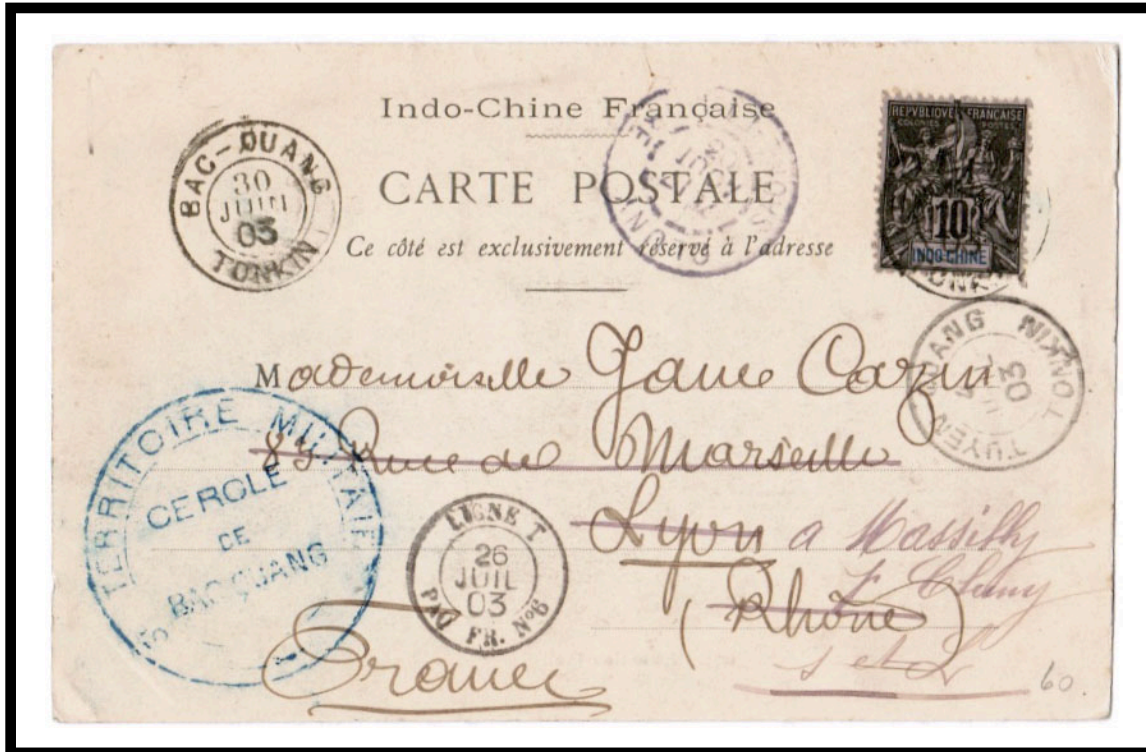 Indo-Chine Française
CARTE POSTALE
Ce côté est exclusivement réservé à l'adresse
BAC-QUANG
30
JUIN
03
TONKIN
REPVBLIQVE FRANÇAISE
COLONIES POSTES
10
INDO-CHINE
TUYEN QUANG
03
TONKIN
Mademoiselle Jane Cazin
85 Rue de Marseille
Lyon à Massilly
Cluny
(Rhône)
S et L
France
60
TERRITOIRE MILITAIRE
CERCLE
DE
BAC-QUANG
LIGNE T
26
JUIL
03
PAQ. FR. Nº6